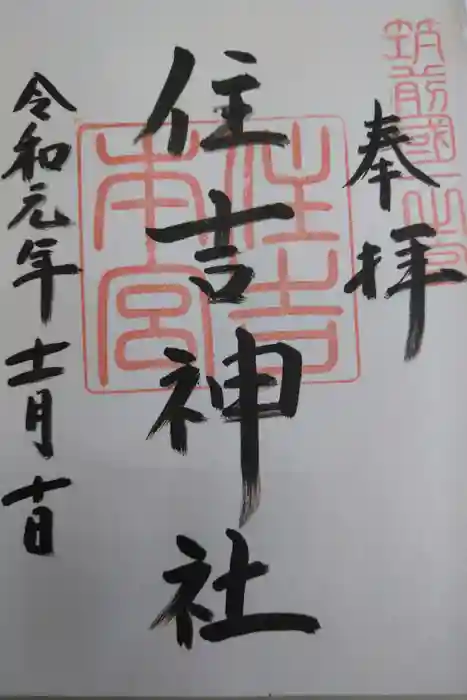 筑前國一之宮
奉拝
住吉神社
住吉
本宮
令和元年十一月十日